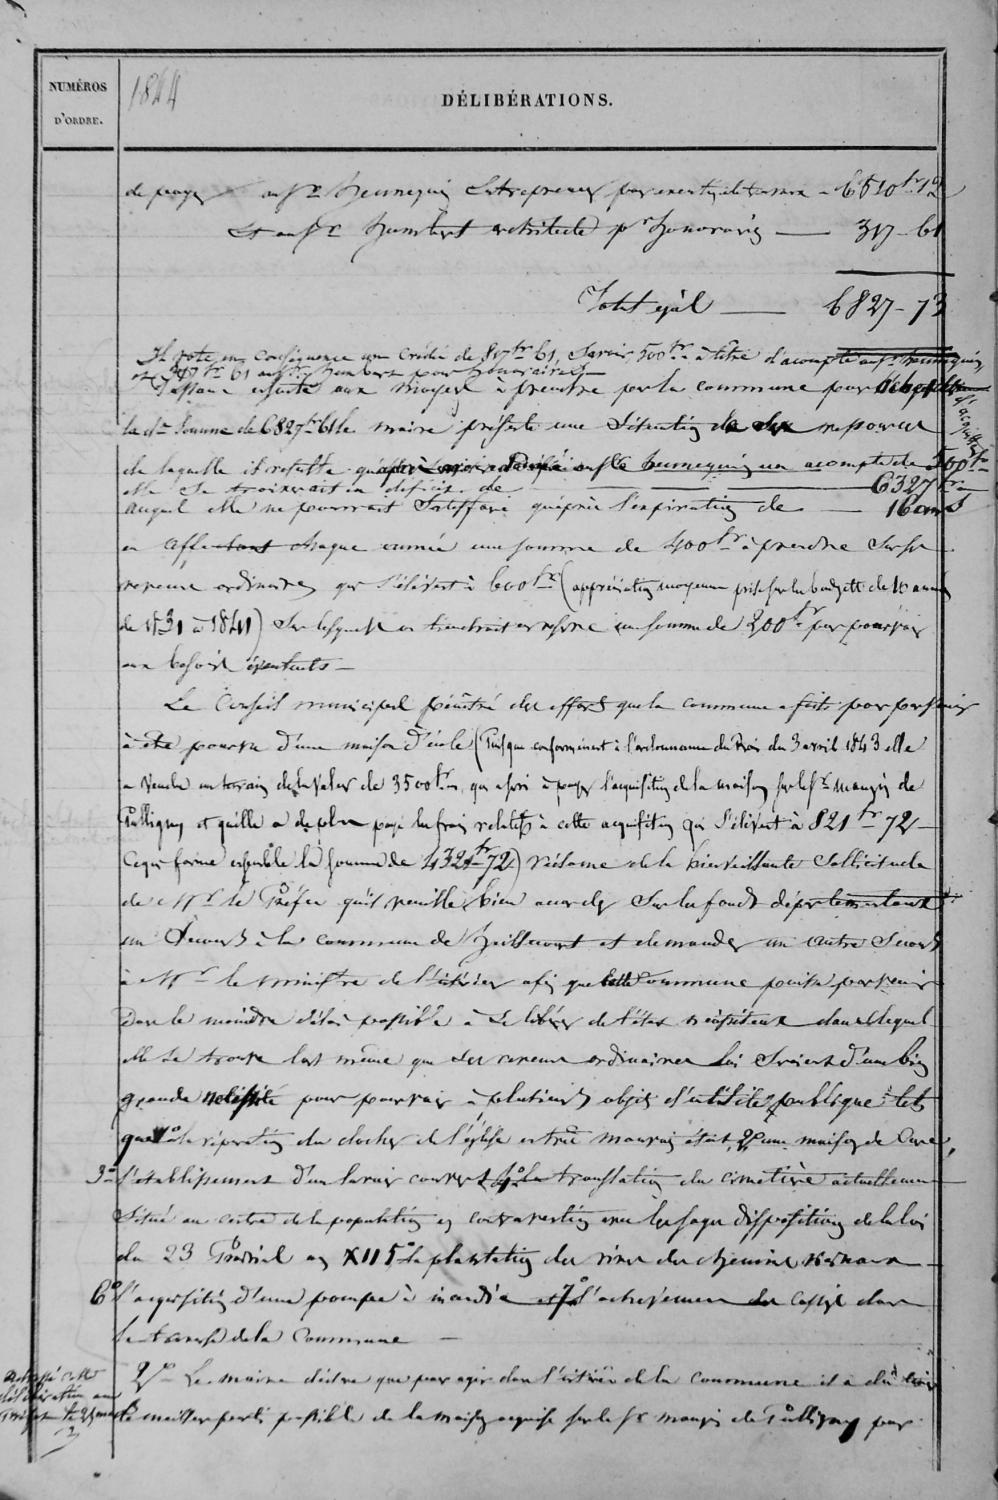 NUMÉROS
D'ORDRE.
1844
DÉLIBÉRATIONS.
de payer au Sr hennequin Entrepreneur pour 6510 fr 12
Et au Sr humbert architecte pr honoraires — 317 - 61
Total égal — 6827 - 73
Il vote en conséquence un Crédit de 817 fr 61, Savoir 500 fr à titre d'acompte au Sr hennequin,
et 317 fr 61 au Sr humbert pour honoraires —
Passant ensuite aux moyens à prendre par la commune pour
la dte Somme de 6827 fr 61 le maire présente une Situation de Ses ressources
de laquelle il résulte qu'après avoir au Sr hennequin un acompte de 500 fr
elle Se trouverait en déficit de — 6327 fr
auquel elle ne pourrait Satisfaire qu'après l'expiration de — 16 ans
en affectant chaque année une somme de 400 fr à prendre Sur Ses
revenus ordinaires qui S'élèvent à 600 fr (appréciation moyenne prise sur les budgets de 10 années
de 1831 à 1841) Sur lesquels on tiendrait en réserve une somme de 200 fr pour pourvoir
aux besoins éventuels —
Le Conseil municipal pénétré des efforts que la commune a faits pour parvenir
à être pourvue d'une maison d'école (Puisque conformément à l'ordonnance du Roi du 3 avril 1843 elle
a vendu un terrain de la valeur de 3500 fr, qui a servi à payer l'acquisition de la maison sur le Sr maugin de
Pulligny et qu'elle a de plus payé les frais relatifs à cette acquisition qui S'élèvent à 821 fr 72 —
Ce qui forme ensemble la somme de 4321 fr 72) réclame de la bienveillante Sollicitude
de Mr le Préfet qu'il veuille bien accorder Sur les fonds départementaux
un Secours à la commune de et demander un autre Secours
à Mr le ministre de l'intérieur afin que cette Commune puisse parvenir
dans le moindre délai possible à Se libérer de l'état nécessiteux dans lequel
elle Se trouve lors même que Ses revenus ordinaires lui Seraient d'une bien
grande nécessité pour pourvoir à plusieurs objets d'utilité publique tels
que 1° la réparation du clocher de l'église en très mauvais état, 2° une maison de Cure,
3° l'établissement d'un lavoir couvert 4° la translation du cimetière actuellement
Situé au centre de la population en contravention avec les Sages dispositions de la loi
du 23 Prairial an XII 5° la plantation des rives des chemins vicinaux —
6° l'acquisition d'une pompe à incendie et 7° l'achèvement des cassis dans
la traverse de la Commune —
adressé cette
délibération au
Préfet le 25 mars
2° Le maire déclare que pour agir dans l'intérêt de la commune il a dû tirer
le meilleur parti possible de la maison acquise sur le Sr maugin de Pulligny pour